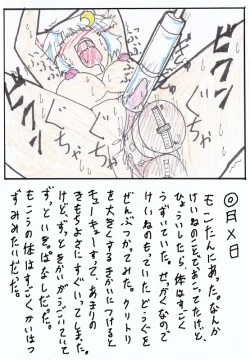 ◎月×日
モこたんにあった。なんか
けいねのことでおこってたけど、
ひょういしたら、体はすごく
うずいていた。せっかくなので
けいねのもっていたどうぐを
ぜんぶつかってみた。クリトリ
を大きくするきかいにつけると
キューキューすって、あまりの
きもちよさにすぐいってしまった。
けど、ずっときかいがうごいていて
ずっといきっぱなしだった。
もこうの体はすごくかいはつ
ずみみたいだった。
ビクン
ビクン
ぐちゃ
ぐちゃ